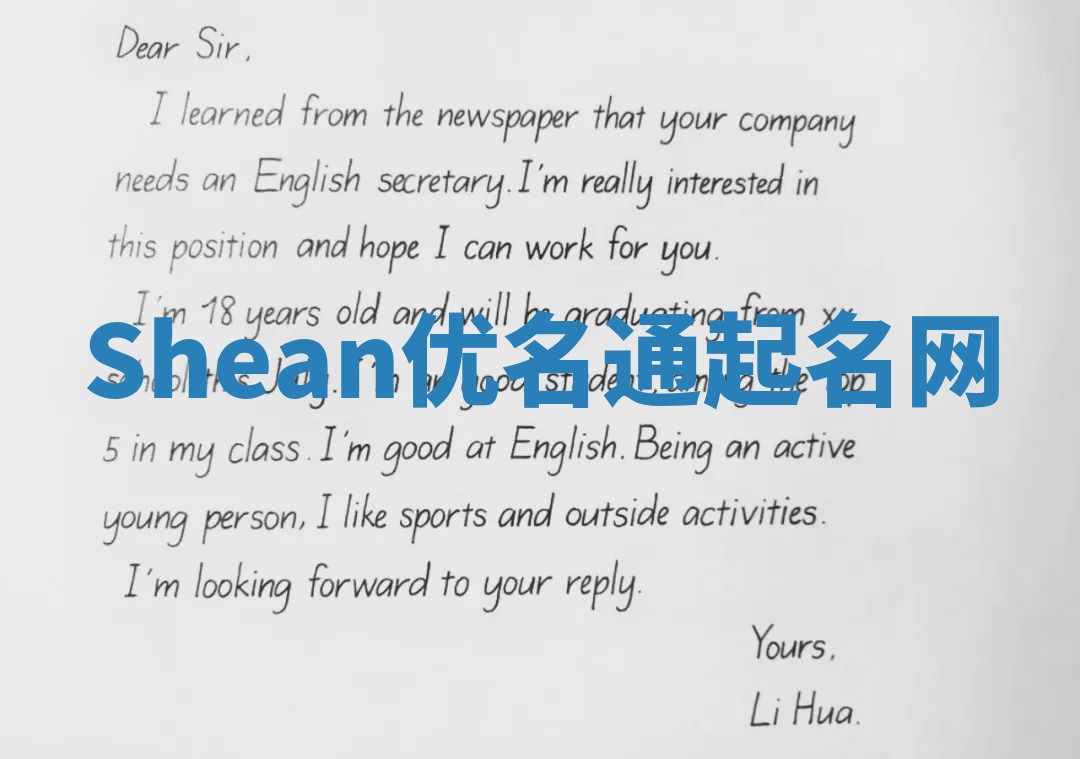 Dear Sir,
I learned from the newspaper that your company
needs an English secretary. I'm really interested in
this position and hope I can work for you.
I'm 18 years old and will be graduating from xx
Shean优名通起名网
school this July. I'm good student, among the top
5 in my class. I'm good at English. Being an active
young person, I like sports and outside activities.
I'm looking forward to your reply.
Yours,
Li Hua.